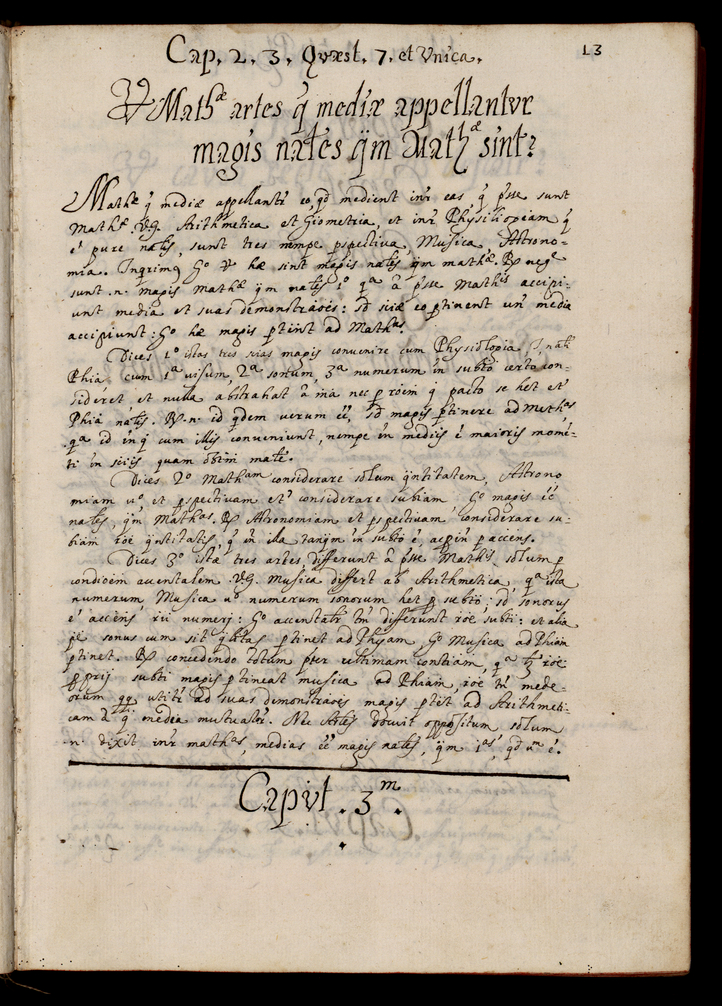 Cap. 2. 3. Qvæst. 7. et Vnica.
13
Math^æ artes q̃ mediæ appellantvr
magis nat̃es q̃m Math^æ sint?
Math^æ q̃ mediæ appellant^r eo, qđ medient int̃ eas, q̃ p̃sse sunt
Math^æ. V.G. Arithmetica et Giometria, et int̃ Physiliogiam q̃
ẽ pure nãlis, sunt tres nempe p̃spectiva, Musica, Astrono-
mia. Inqrimq̃ G° V hæ sint magis nãles q̃m mathæ. R̃ neg^e
sunt .n. magis Mathæ q̃m nãles 1° q^a â p̃sse Math^is accipi-
unt media et suas demonstrões: sđ sciæ eo p̃tinent un̄ media
accipiunt: G° hæ magis p̃tint ad Math^as
Dices 1° istas tres sias magis convenire cum Physiologia, s. nãli
Phiã, cum 1^a visum, 2^a sonum, 3^a numerum in subt̃o certo con-
sideret et nulla abstrahat â mã nec p rõem q̃ pacto se het et^r
Phiã nãlis. R̃. n. id q̃dem verum ẽẽ, sđ magis p̃tinere ad Math^as
q^a id in q̃ cum illis conveniunt, nempe in mediis ẽ maioris momẽ-
ti in sciis quam obt̃m matẽ.
Dices 2° Matham considerare solum q̃ntitatem, Astrono
miam u° et p̃spectivam et^r considerare subiam G° magis ẽẽ
nãles, q̃m Math^as. R̃ Astronomiam et p̃spectivam, considerare su-
biam rõe q̃ntitatis, q̃ in illa tanq̃m in subt̃o ẽ, ac p̃in p accens.
Dices 3° istæ tres artes, differunt â p̃sse Math^is solum p
condiõem accntalem. V.G. Musica differt ab Arithmetica, q^a ista
numerum, Musica u° numerum sonorum het p subt̃o; sđ sonorus
ẽ accens rĩi numeri: G° accentalr̃ tm̃ differunt rõe subti: et alia
sonus cum sit q̃litas p̃tinet ad Physam G° Musica ad Phiam
p̃tinet. R̃ concedendo totum p̃ter ultimam conſtiam, q^a rõe
p̃prij subti magis p̃tineat musica ad Phiam, rõe tm̃ medi-
orum qq̃ utit^r ad suas demonstrões magis p̃tet ad Arithmeti-
cam q̃ media mutuat^r. Nec Ãrtes docuit oppositum, solum
.n. dixit int̃ math^as, medias ẽẽ magis nãles, q̃m 1^as, qđ um ẽ.
Capvt . 3^m .